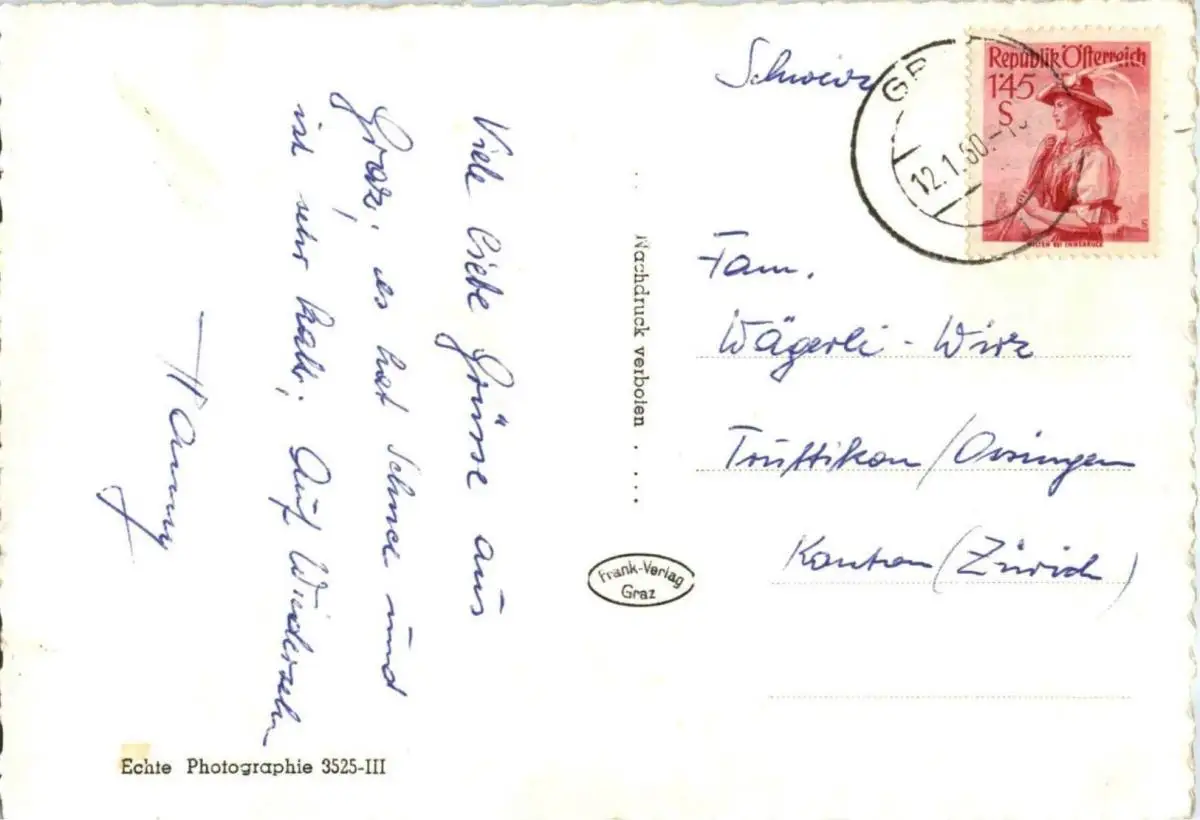 Viele liebe Grüsse aus
Graz, es hat Schnee und
ist sehr kalt, Auf Wiedersehn
Hanny
Echte Photographie 3525-III
Nachdruck verboten . . . .
Frank-Verlag
Graz
Schweiz
Republik Österreich
1'45
S
WILTEN BEI INNSBRUCK
12.1.60.-
Fam.
Wägerli-Wirz
Truttikon/Ossingen
Kanton (Zürich)